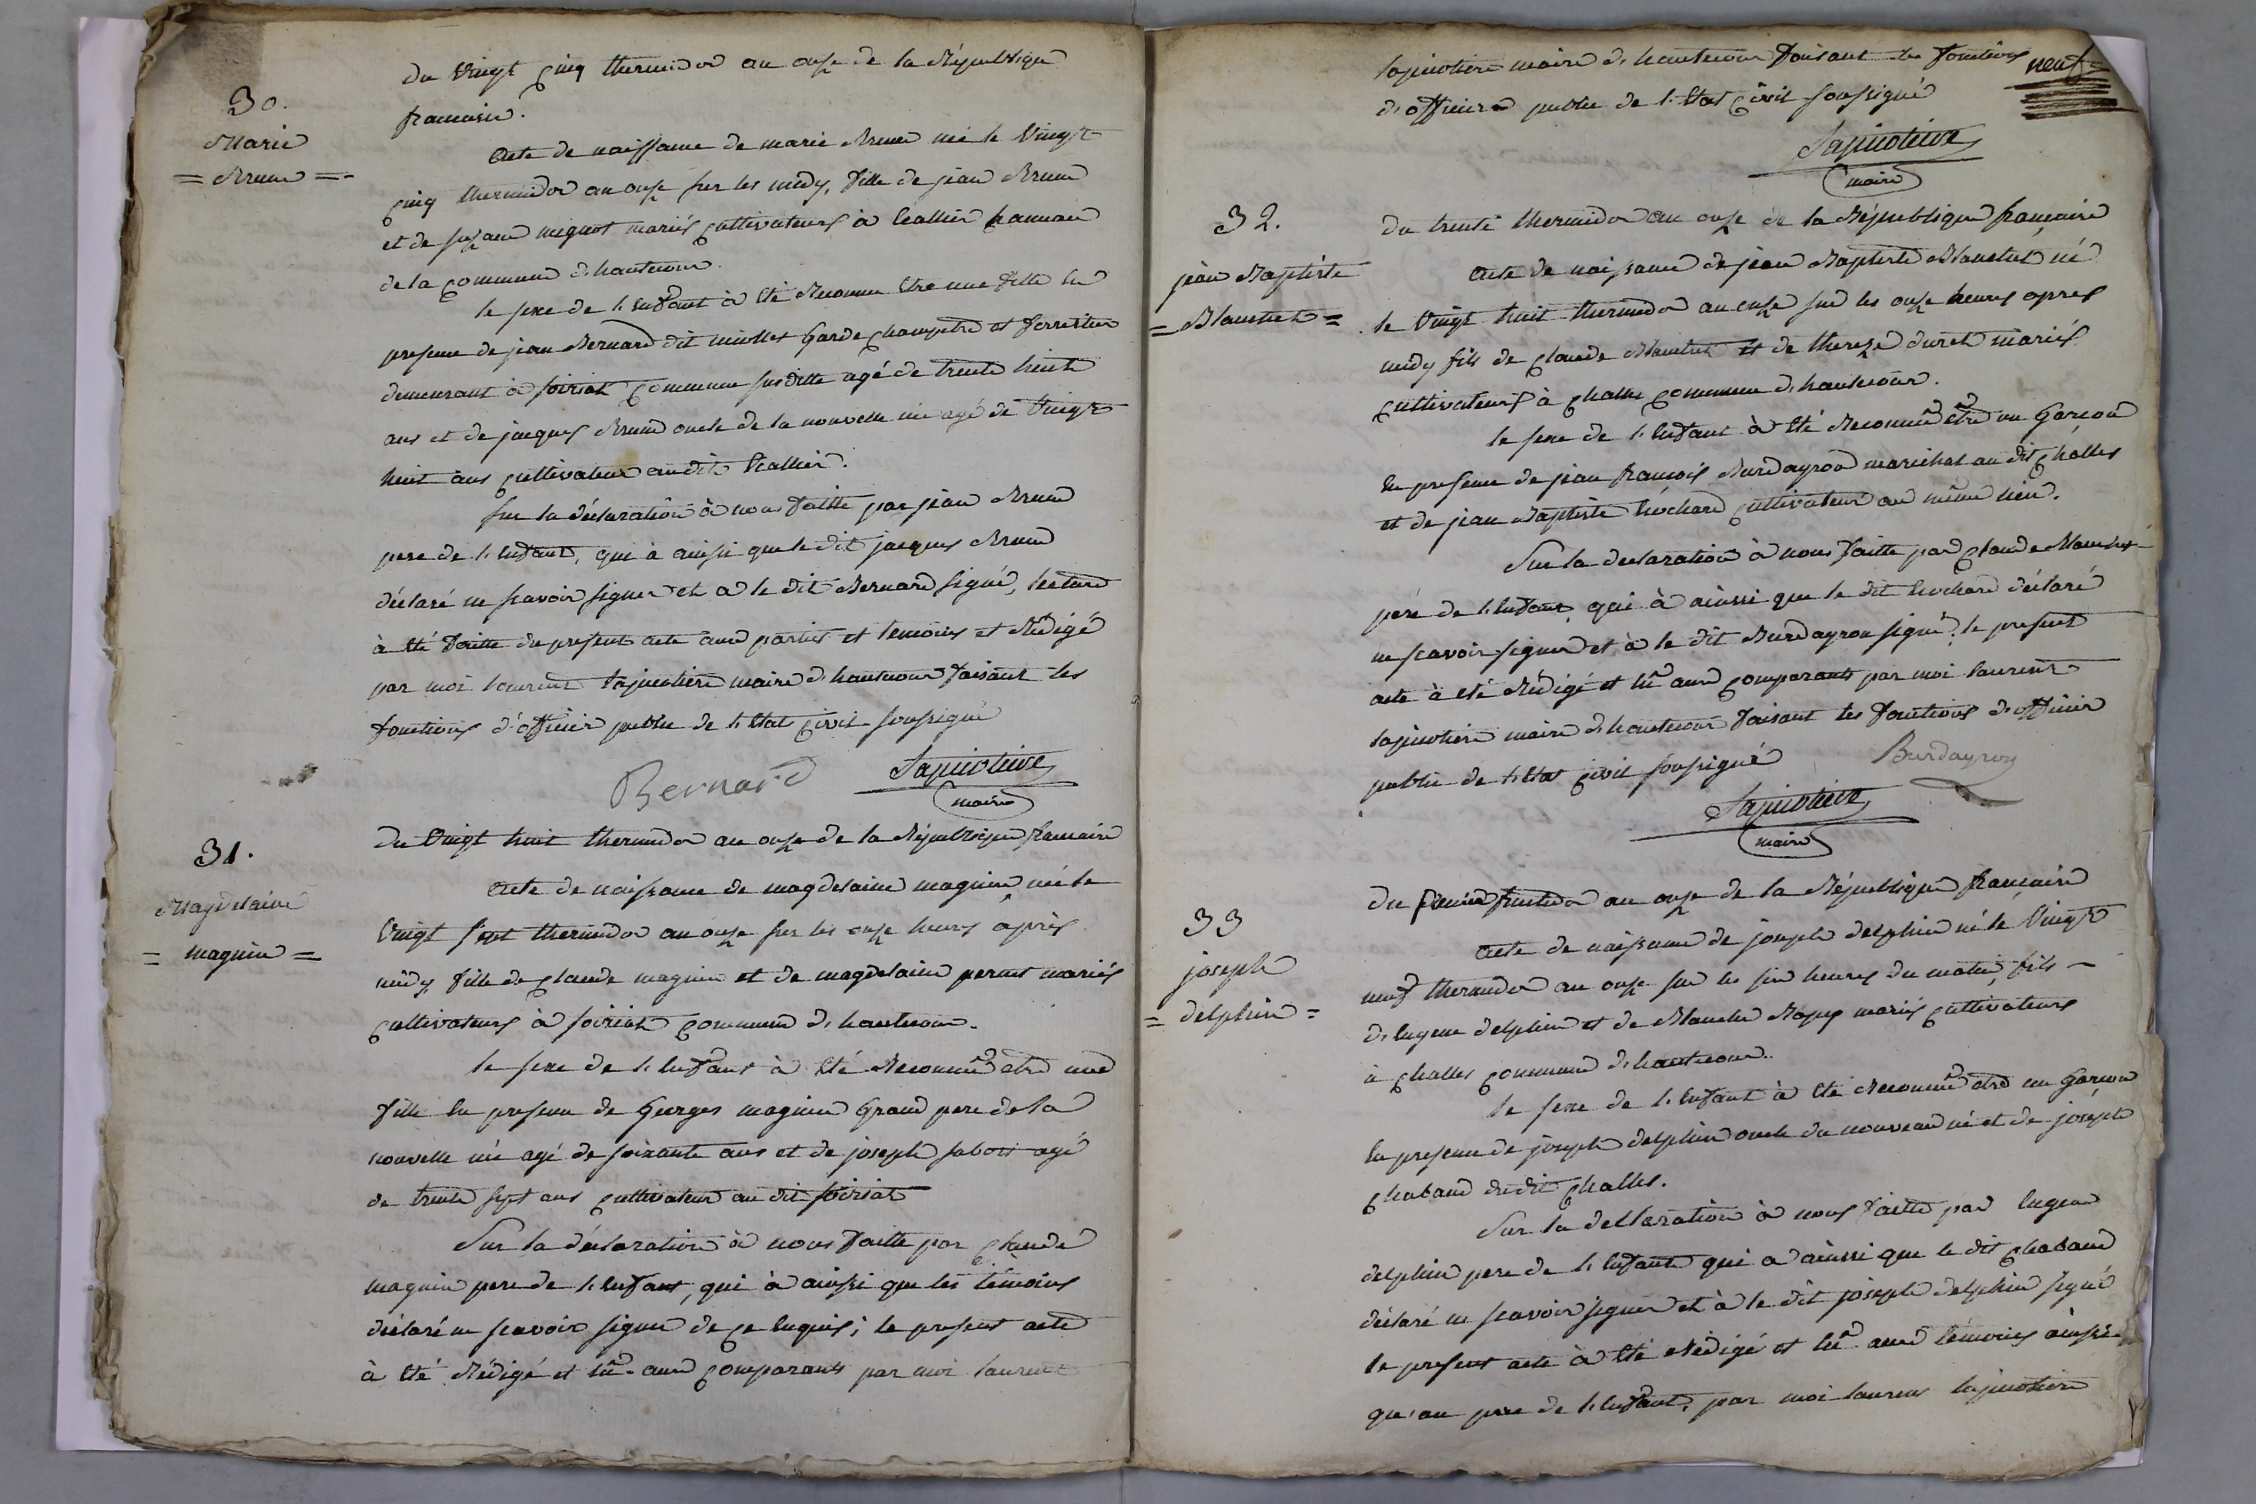 30.
Marie
= Brun =
du vingt cinq thermidor an onze de la République
francaise.
acte de naissance de marie Brun née le vingt
cinq thermidor an onze sur les midy, fille de jean Brun
et de suzanne mignot mariés cultivateurs à hameau
de la commune d. hautecour.
le sexe de l. enfant à été reconnu etre une fille en
presence de jean Bernard dit miolles Garde champetre et forrestier
demeurant à soiriat commune susditte agé de trente huit
ans et de jacques Brun oncle de la nouvelle née agé de vingt
huit ans cultivateur au dit
sur la déclaration à nous faitte par jean Brun
pere de l. enfant, qui à ainsi que le dit jacques Brun
déclaré ne scavoir signer et a le dit Bernard signé, lecture
à été faitte du present acte aux parties et temoins et rédigé
par moi laurent lapicotiere maire d. hautecour faisant les
fonctions d'officier public de l. etat civil soussigné
Bernard Lapicotiere
maire
31.
Magdelaine
= magnin =
du vingt huit thermidor an onze de la République francaise
acte de naissance de magdelaine magnin née le
vingt sept thermidor an onze sur les onze heures après
midy fille de claude magnin et de magdelaine mariés
cultivateurs à soiriat commune d. hautecour.
le sexe de l. enfant à été reconnu etre une
fille en presence de Georges magnin Grand pere de la
nouvelle née agé de soixante ans et de joseph sabot agé
de trente sept ans cultivateur au dit soiriat
Sur la déclaration à nous faitte par Claude
magnin pere de l. enfant, qui à ainsi que les témoins
déclaré ne scavoir signer de ce enquis; le present acte
à été rédigé et lû aux comparants par moi laurent
neuf
lapicotiere maire d. hautecour faisant les fonctions
d. officier public de l. etat civil soussigné
Lapicotiere
maire
32.
jean Baptiste
= Blanchet =
du trente thermidor an onze de la République francaise
acte de naissance de jean Baptiste Blanchet né
le vingt huit thermidor an onze sur les onze heures apres
midy fils de claude Blanchet et de thereze duret mariés
cultivateurs à challes commune d. hautecour.
le sexe de l. enfant à été reconnû être un Garçon
en presence de jean francois Burdayron marechal au dit challes
et de jean Baptiste cultivateur au même lieu.
Sur la declaration à nous faitte par claude Blanchet
père de l. enfant, qui à ainssi que le dit déclaré
ne scavoir signer et à le dit Burdayron signé; le present
acte à été rédigé et lû aux comparants par moi laurent
lapicotiere maire d. hautecour faisant les fonctions d. officier
public de l. etat civil soussigné Burdayron
Lapicotiere
maire
33
joseph
= delphin =
du premier fructidor an onze de la République francaise
acte de naissance de joseph delphin né le vingt
neuf thermidor an onze sur les six heures du matin, fils
d. eugene delphin et de Blanche mariés cultivateurs
à challes commune d. hautecour.
le sexe de l. enfant à été reconnû etre un Garçon
en presence de joseph delphin oncle du nouveau né et de joseph
chaband du dit challes.
Sur la declaration à nous faitte par eugene
delphin pere de l. enfant qui a ainssi que le dit chaband
déclaré ne scavoir signer et à le dit joseph delphin signé
le present acte à été rédigé et lû aux témoins ainssi
qu'au pere de l. enfant, par moi laurent lapicotiere